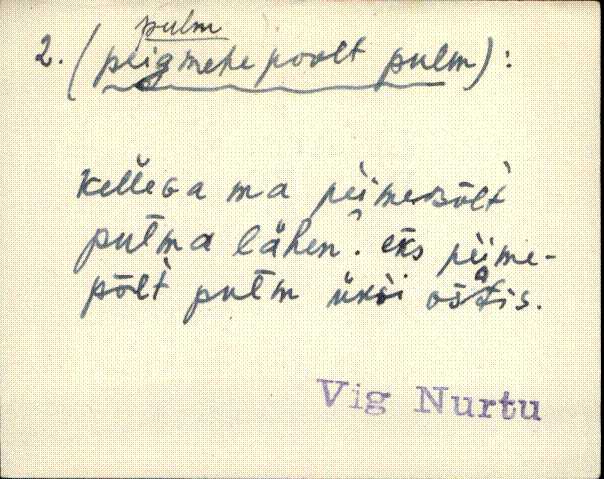 pulm
2. (peigmehe poolt pulm):
kellega ma peime
pulma lähen? eks peime-
põlt pulm üksi
Vig Nurtu